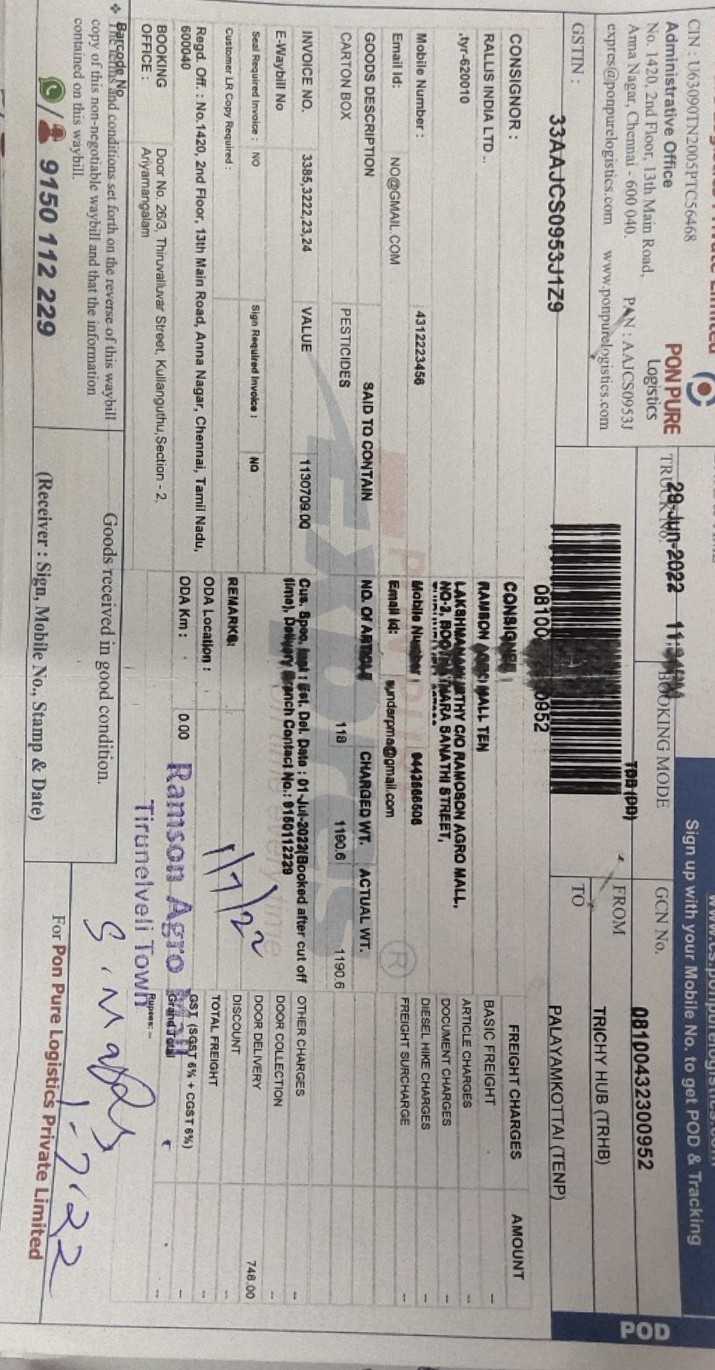 CIN : U63090TN2005PTC56468
Administrative Office
No. 1420, 2nd Floor, 13th Main Road,
Anna Nagar, Chennai - 600 040. PAN : AAJCS0953J
expres@ponpurelogistics.com www.ponpurelogistics.com
PON PURE
Logistics
GSTIN :
33AAJCS0953J1Z9
Sign up with your Mobile No. to get POD & Tracking
POD
TRUCK No.
29-Jun-2022
BOOKING MODE
TBB (DD)
GCN No.
08100432300952
FROM
TRICHY HUB (TRHB)
TO
PALAYAMKOTTAI (TENP)
CONSIGNOR :
RALLIS INDIA LTD..
.tyr-620010
Mobile Number : 4312223456
Email Id: NO@GMAIL.COM
CONSIGNEE :
RAMSON AGRO MALL TEN
NO-3, SANATH STREET,
Mobile Number :
Email Id: sunderpme@gmail.com
GOODS DESCRIPTION SAID TO CONTAIN NO. OF ARTICLE CHARGED WT. ACTUAL WT.
CARTON BOX PESTICIDES 118 1190.6 1190.6
INVOICE NO. 3385,3222,23,24 VALUE 1130709.00
E-Waybill No
Seal Required Invoice : NO Sign Required Invoice : NO
Customer LR Copy Required :
Est. Del. Date : 01-Jul-2022(Booked after cut off
time), Delivery Branch Contact No.: 9150112229
REMARKS:
Regd. Off. : No.1420, 2nd Floor, 13th Main Road, Anna Nagar, Chennai, Tamil Nadu,
600040
ODA Location :
ODA Km : 0.00
BOOKING OFFICE : Door No. 26/3, Thiruvalluvar Street, Kullanguthu,Section - 2,
Ariyamangalam
FREIGHT CHARGES AMOUNT
BASIC FREIGHT --
ARTICLE CHARGES --
DOCUMENT CHARGES --
DIESEL HIKE CHARGES --
FREIGHT SURCHARGE --
OTHER CHARGES --
DOOR COLLECTION --
DOOR DELIVERY 748.00
DISCOUNT --
TOTAL FREIGHT --
GST (SGST 6% + CGST 6%) --
Grand Total --
Rupees: -- --
1/7/22
Ramson Agro Mall
Tirunelveli Town
1-7-22
Barcode No.
The terms and conditions set forth on the reverse of this waybill
copy of this non-negotiable waybill and that the information
contained on this waybill.
9150 112 229
Goods received in good condition.
(Receiver : Sign, Mobile No., Stamp & Date)
For Pon Pure Logistics Private Limited